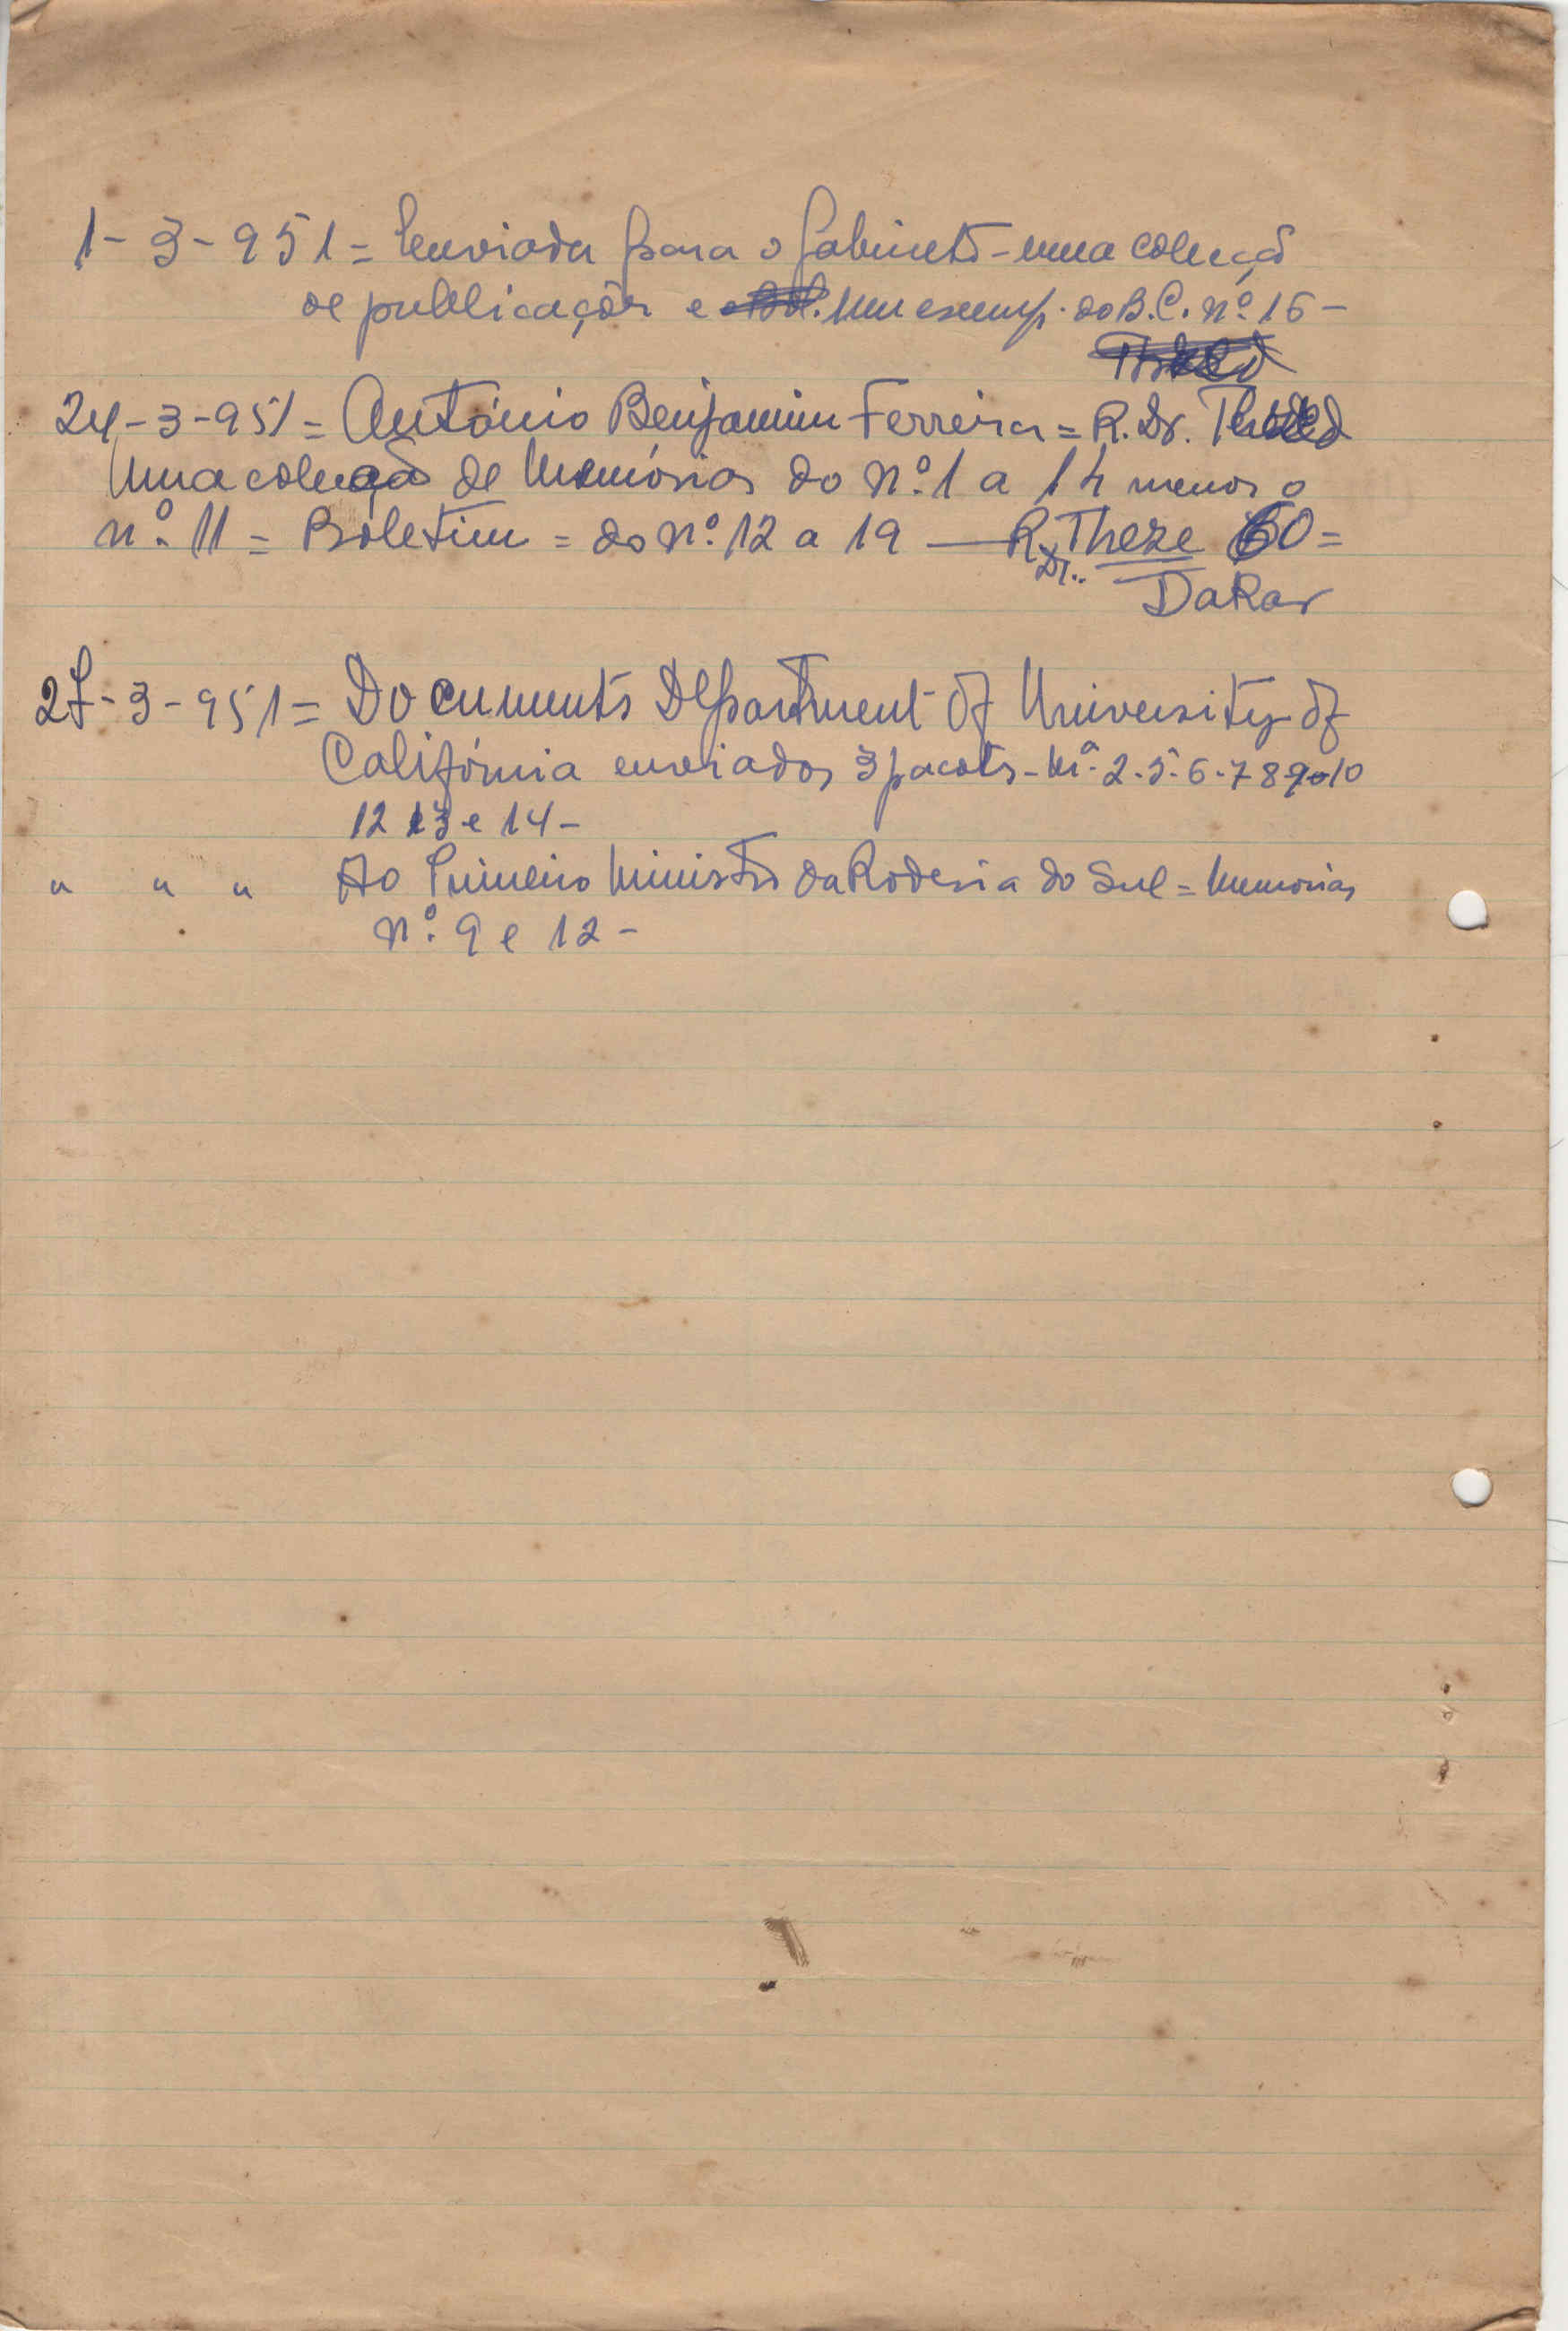 1-3-951= Enviada para o Gabinete - uma colecçã
de publlicações e um exemp. do B.C. nº 16 -
24-3-951= António Benjamim Ferreira = R. Dr.
Uma colecçaõ de Memórias do nº 1 a 14 menos o
nº. 11 = Boletim = do nº. 12 a 19 — R. Dr. Theze 60=
Dakar
27-3-951= Documents Department of University of
Califórnia enviados 3 pacotes - Nº. 2.5.6.7 8 9 10
12 13 e 14-
" " " Ao Primeiro Ministro da Rodesia do Sul = Memorias
nº. 9 e 12-